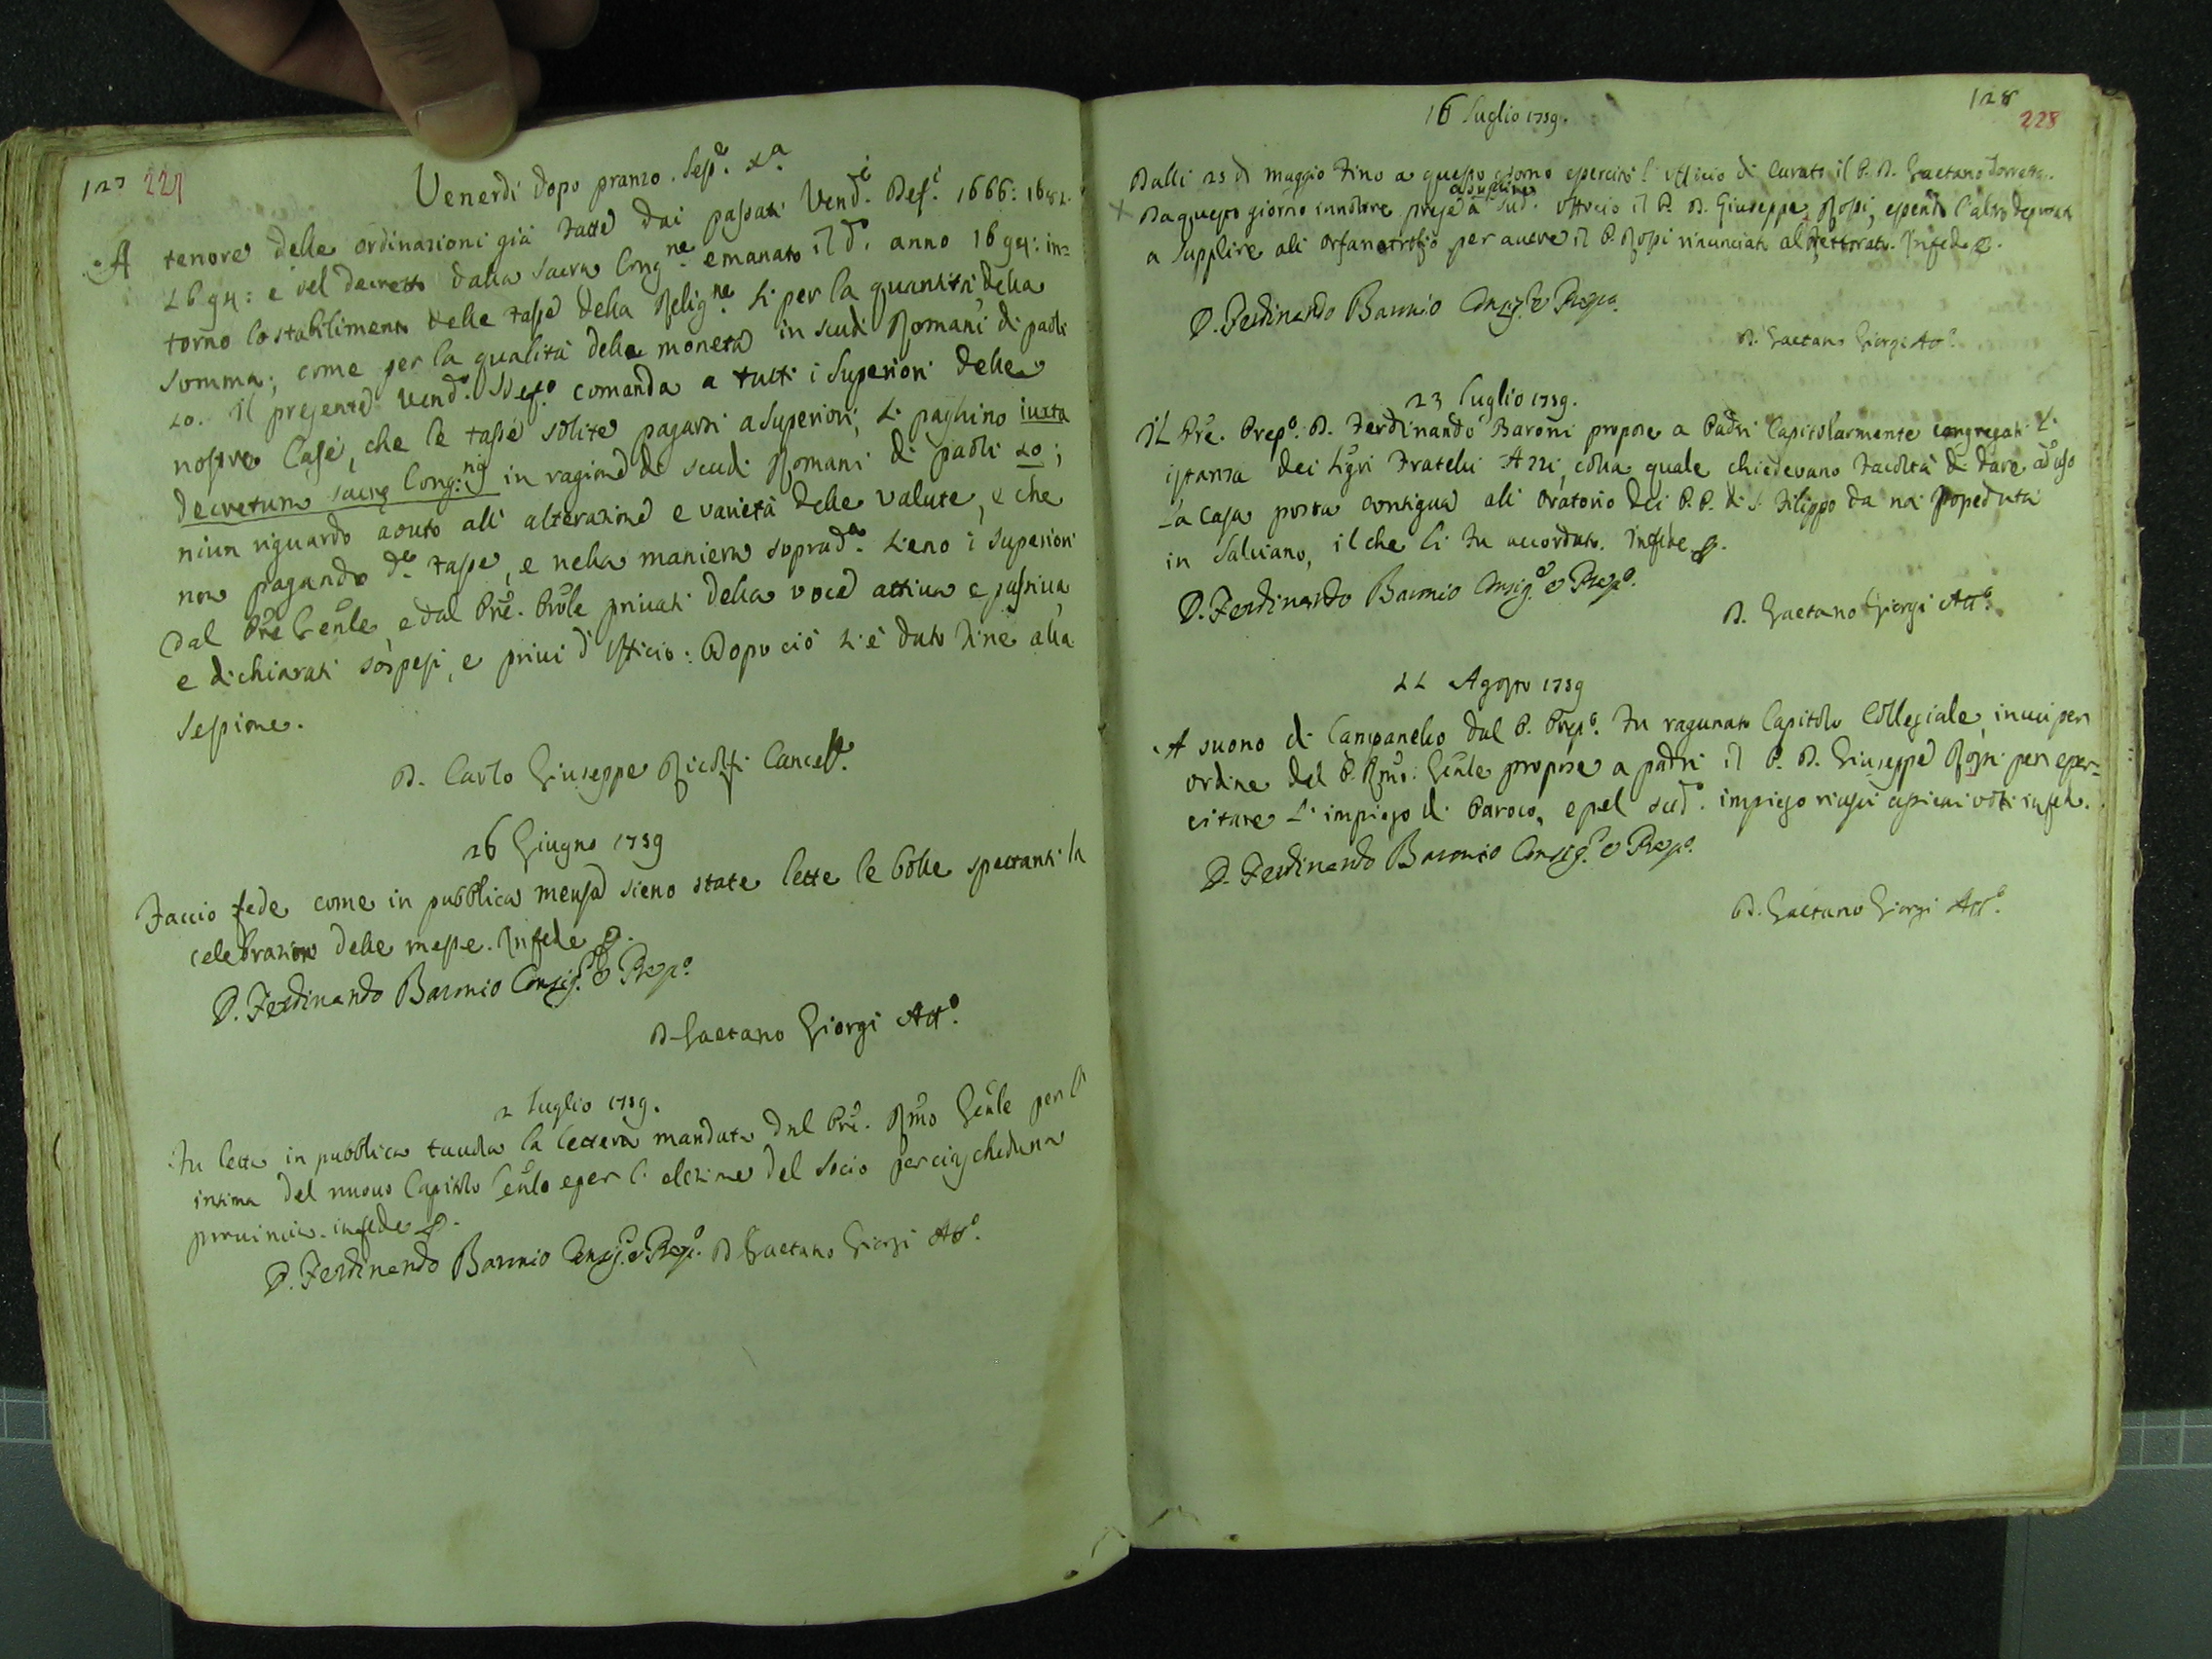 127 227
Venerdi dopo pranzo. Sess.e xa.
A tenore delle ordinazioni già fatte dai passati Vend.i Def.i 1666: 1682.
1694: e del decretto dalla Sacra Cong.ne emanato il d.o anno 1694: in=
torno lo stabilimento delle tasse della Relig.ne si per la quantità della
somma, come per la qualità della moneta in scudi Romani di paoli
10. Il presente Vend.o Def.o comanda a tutti i Superiori delle
nostre Case, che le tasse solite pagarsi a Superiori, si paghino iuxta
decretum sacrę Cong.nis in ragione di scudi Romani di paoli 10;
niun riguardo aouto all' alterazione e varietà delle valute, e che
non pagando d.e tasse, e nella maniera soprad.a sieno i Superiori
dal Pre Genle, e dal Pre. Prole privati della voce attiva e passiva,
e dichiarati sospesi, e privi d'Officio: Dopo ciò si è dato fine alla
Sessione.
D. Carlo Giuseppe Ricolfi Cancell.e
26 Giugno 1739
Faccio fede come in pubblica mensa sieno state lette le bolle spettanti la
celebrazion delle messe. In fede
D. Ferdinando Baronio Consig.e e Prep.o
D. Gaetano Giorgi Att.o
2 Luglio 1739.
Fu letta in pubblica tavola la lettera mandata dal Pre. Rmo Genle per l'
intima del nuovo Capitolo Genle e per l' elezione del Socio per ciascheduna
provincia. in fede
D. Ferdinando Baronio Consig.e e Prep.o D. Gaetano Giorgi Att.o
128
228
16 Luglio 1739.
Dalli 25 di Maggio fino a questo giorno esercitò l' ufficio di Curato il P. D. Gaetano
Da questo giorno innoltre prese a sud.o Officio il P. D. Giuseppe Rossi, essendo l'altro deputato
a supplire all' orfanotrofio per avere il P. Rossi rinunciato al Rettorato. In fede
D. Ferdinando Baronio Consig.e e Prep.o
D. Gaetano Giorgi Att.o
23 Luglio 1739.
Il Pre. Prep.o D. Ferdinando Baroni propose a Padri Capitolarmente congregati l'
istanza dei Sigri Fratelli Azzi, colla quale chiedevano facoltà di dare ad uso
la casa posta contigua all' Oratorio dei P. P. di S. Filippo da noi posseduta
in Salviano, il che li fu accordato. In fede
D. Ferdinando Baronio Consig.e e Prep.o
D. Gaetano Giorgi Att.o
11 Agosto 1739
A suono di Campanello dal P. Prep.o fu ragunato Capitolo Collegiale, in cui per
ordine del P. Rmo: Genle propose a padri il P. D. Giuseppe Rossi per eser=
citare l' impiego di Paroco, e pel sud.o impiego riuscì a pieni voti in fede.
D. Ferdinando Baronio Consig.e e Prep.o
D. Gaetano Giorgi Att.o